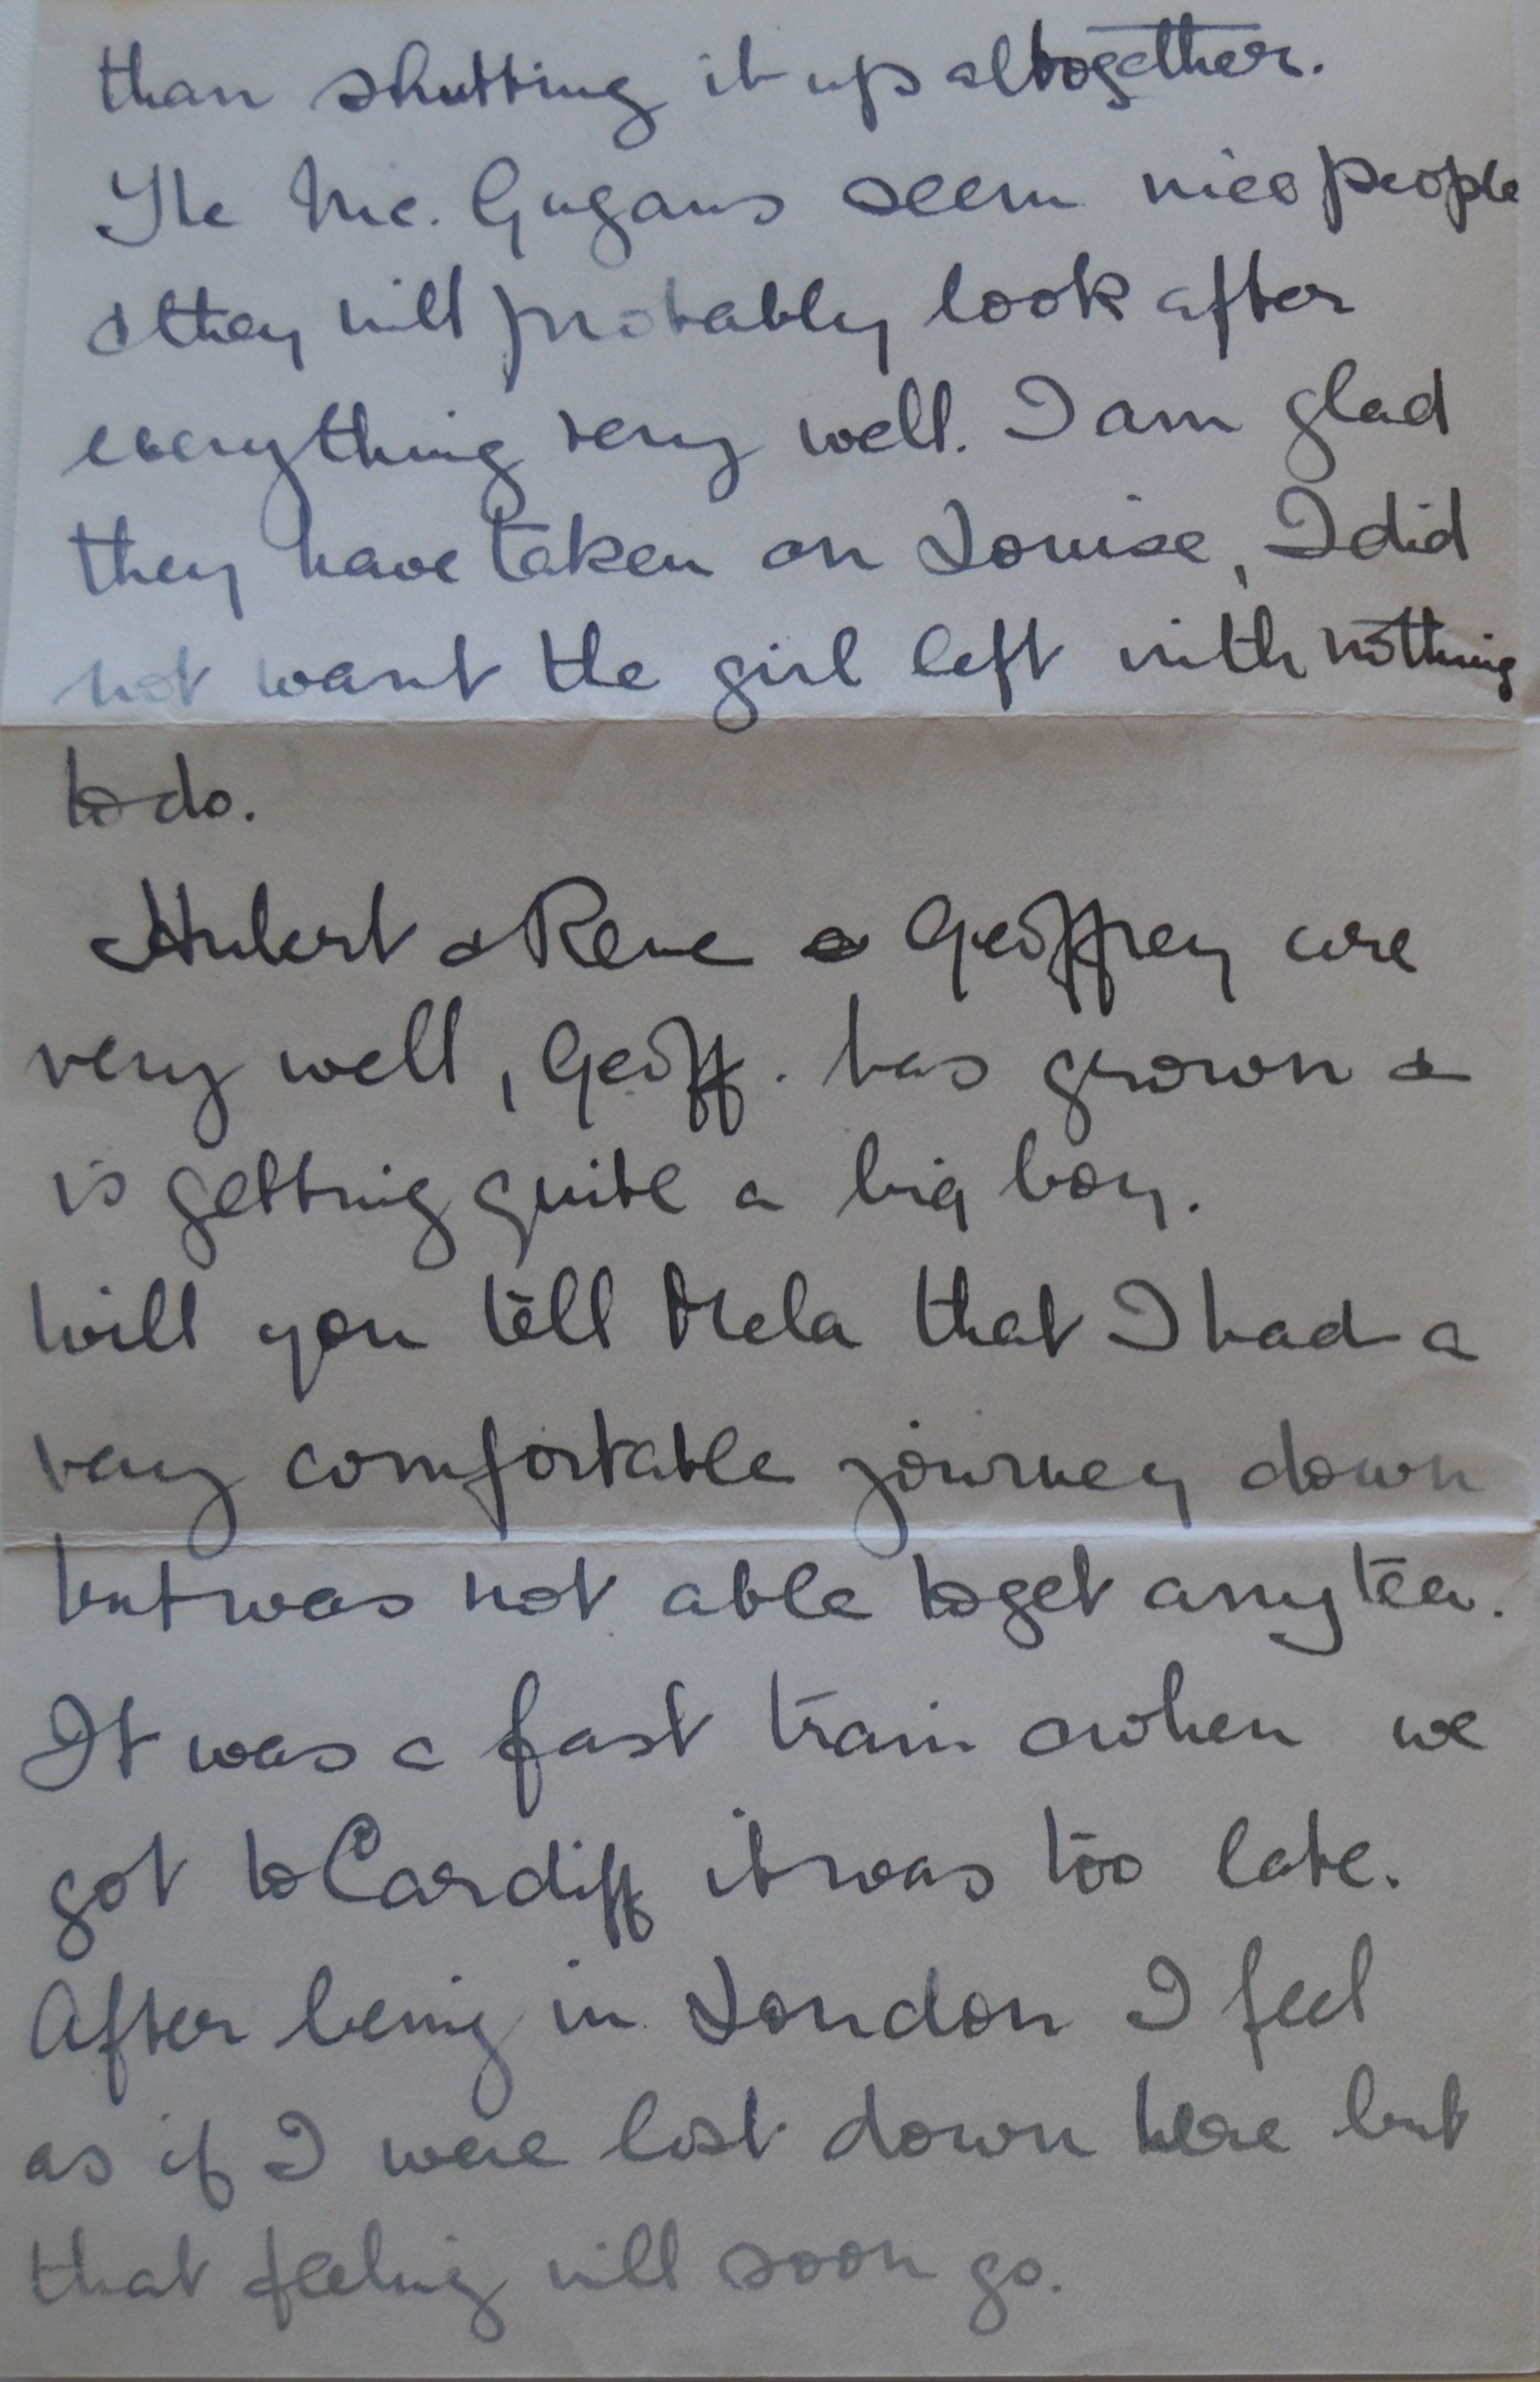 than shutting it up altogether.
The Mc. Gugans seem nice people
& they will probably look after
everything very well. I am glad
they have taken on Louise, I did
not want the girl left with nothing
to do.
Hubert & Rene & Geoffrey are
very well, Geoff. has grown &
is getting quite a big boy.
Will you tell Mela that I had a
very comfortable journey down
but was not able to get any tea.
It was a fast train & when we
got to Cardiff it was too late.
After being in London I feel
as if I were lost down here but
that feeling will soon go.